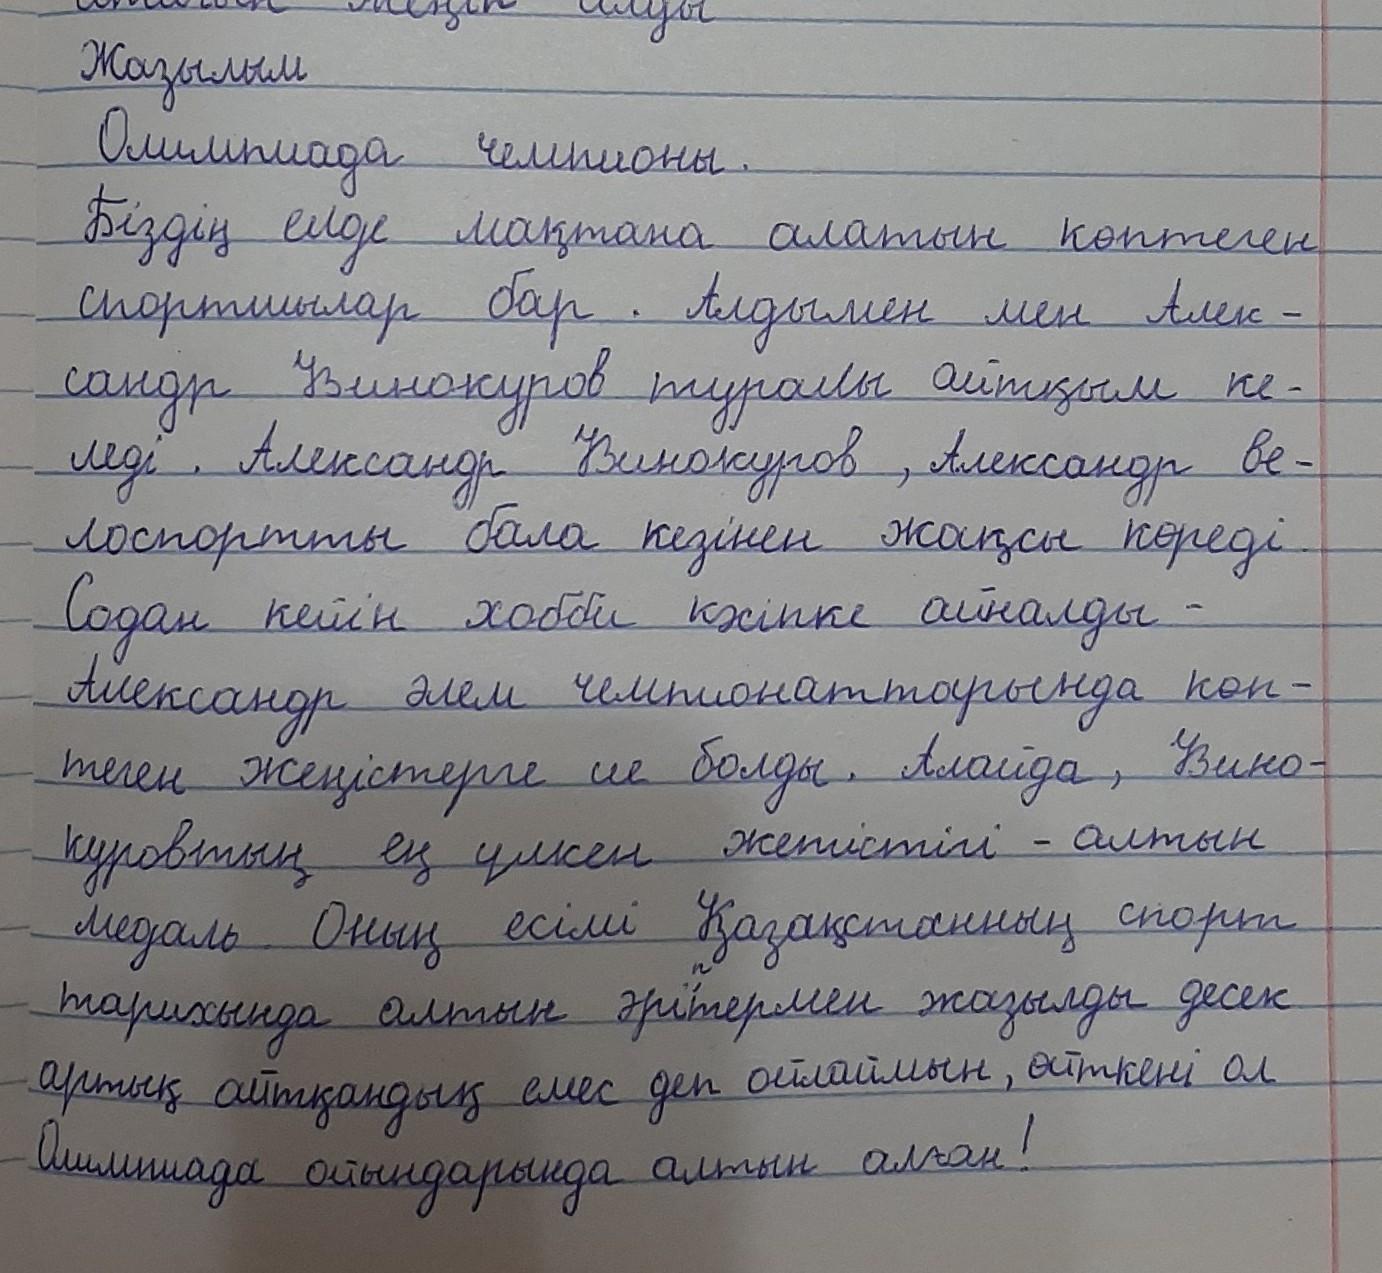 жеңіп алды
Жазылым
Олимпиада чемпионы.
Біздің елде мақтана алатын көптеген
спортшылар бар. Алдымен мен Алек-
сандр Винокуров туралы айтқым ке-
леді. Александр Винокуров, Александр ве-
лоспортты бала кезінен жақсы көреді.
Содан кейін хобби кәсіпке айналды -
Александр әлем чемпионаттарында көп-
теген жеңістерге ие болды. Алайда, Вино-
куровтың ең үлкен жетістігі - алтын
медаль. Оның есімі Қазақстанның спорт
тарихында алтын әріптермен жазылды десек
артық айтқандық емес деп ойлаймын, өйткені ол
Олимпиада ойындарында алтын алған!